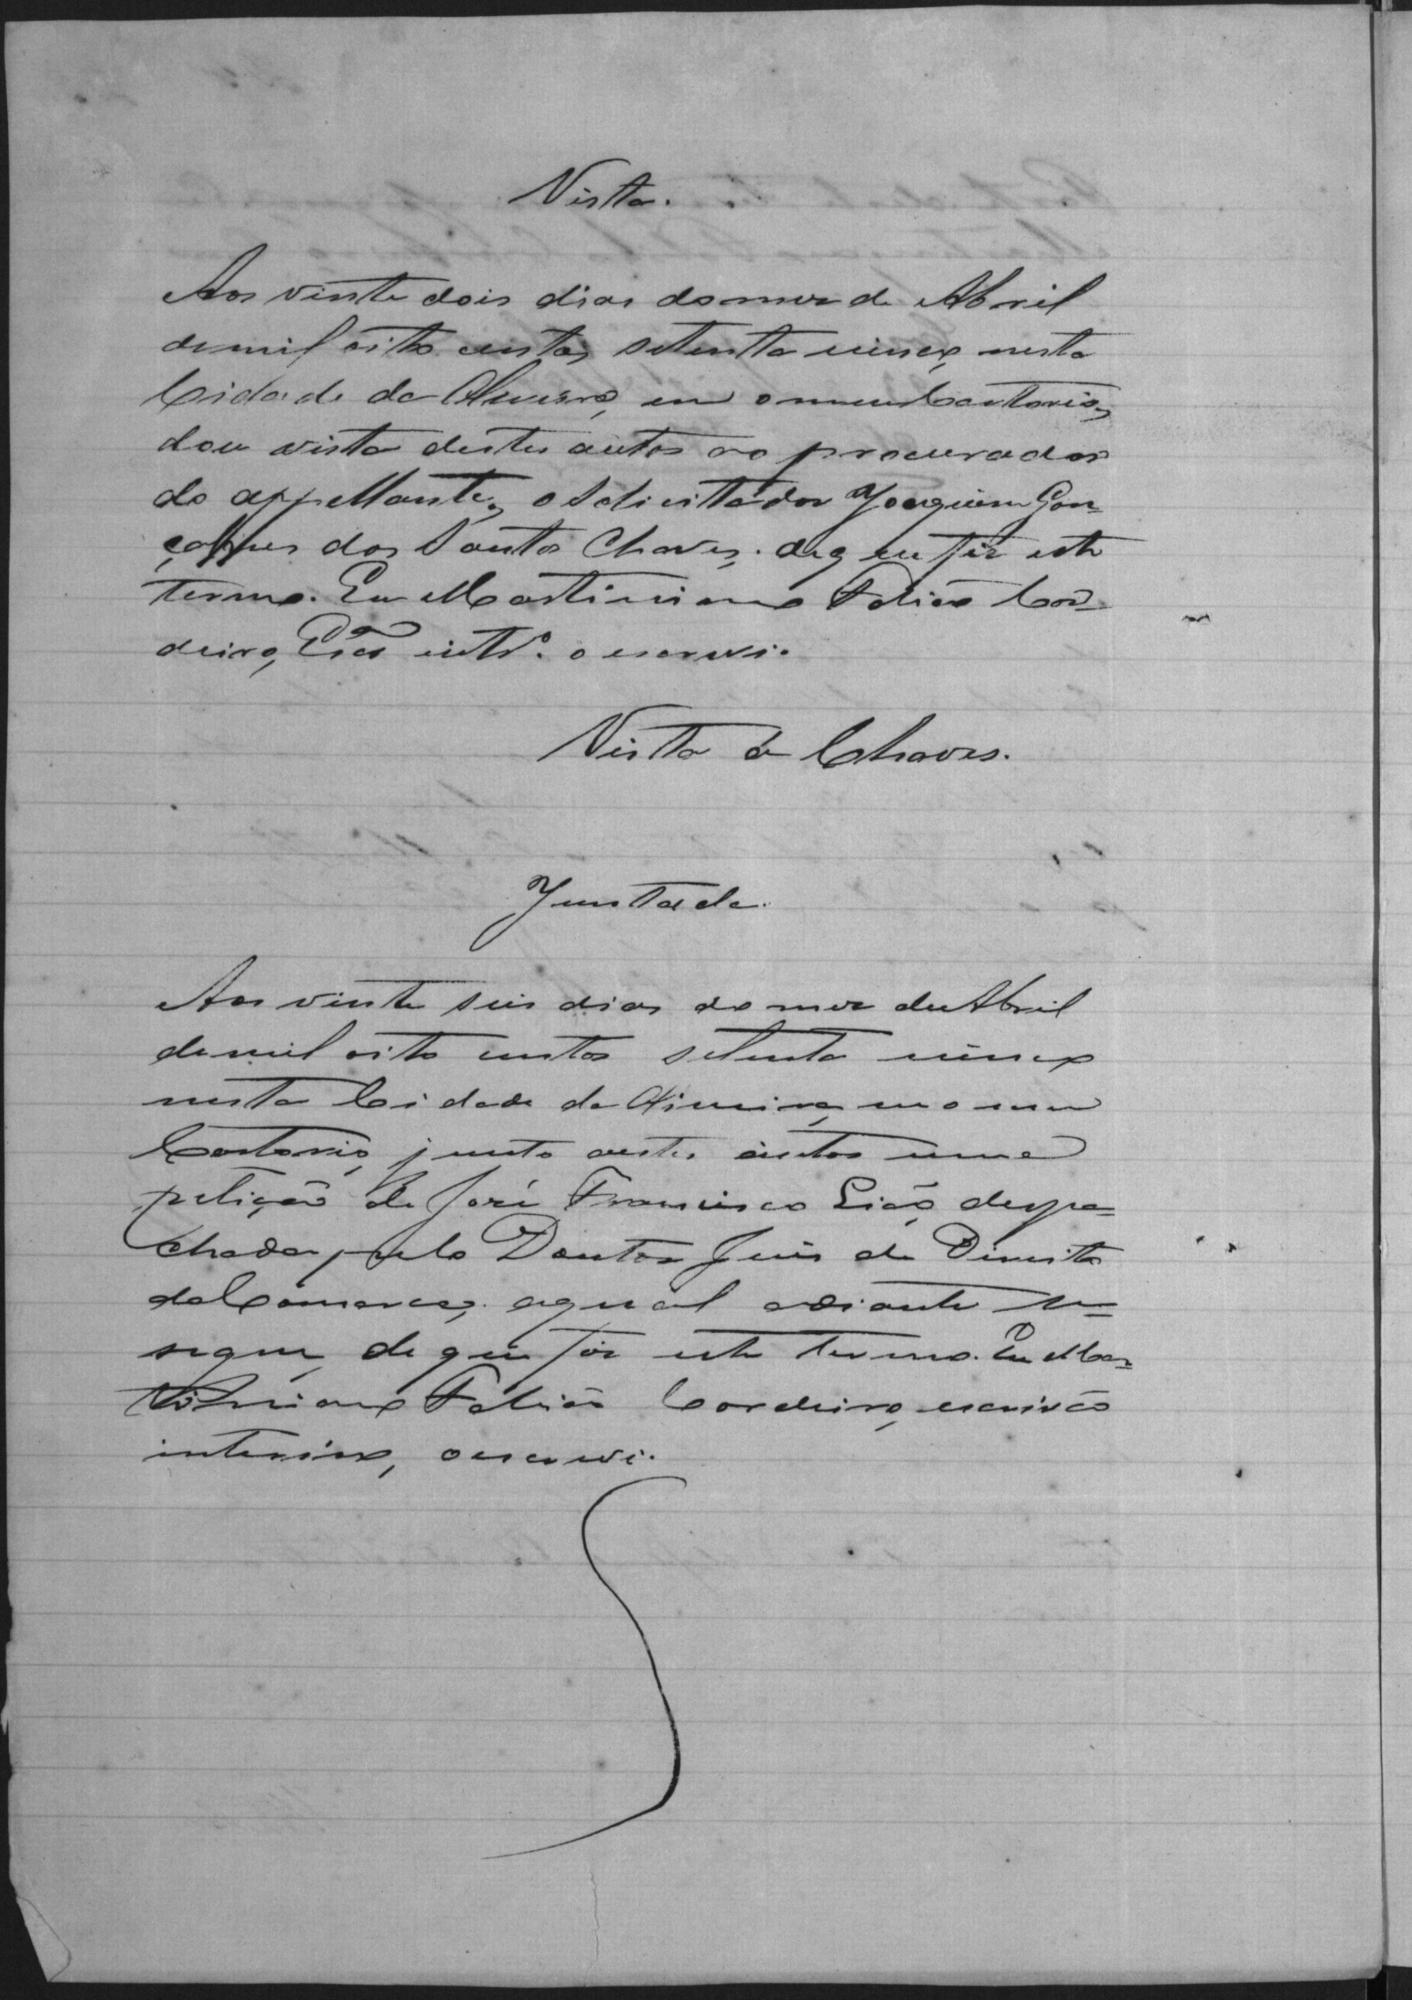 Vista.
Aos vinte dois dias do mez de Abril
de mil oito centos setenta cinco, nesta
Cidade da em o meu Cartorio,
dou vista destes autos ao procurador
do appellante, o Solicitador Joaquim Gon-
çalves dos Santos Chaves. do que fiz este
termo. Eu Martiniano Fabião Cor-
deiro, Escão intrº. o escrevi.
Vista a Chaves.
Juntada.
Aos vinte seis dias do mez de Abril
de mil oito centos setenta cinco
nesta Cidade da em o meu
Cartorio, junto a estes autos uma
petição de José Francisco Lião, despa-
chada pelo Doutor Juis de Direito
da Comarca, a qual adiante se
segue, do que fiz este termo. Eu Mar-
tiniano Fabião Cordeiro, escrivão
interino, o escrevi.